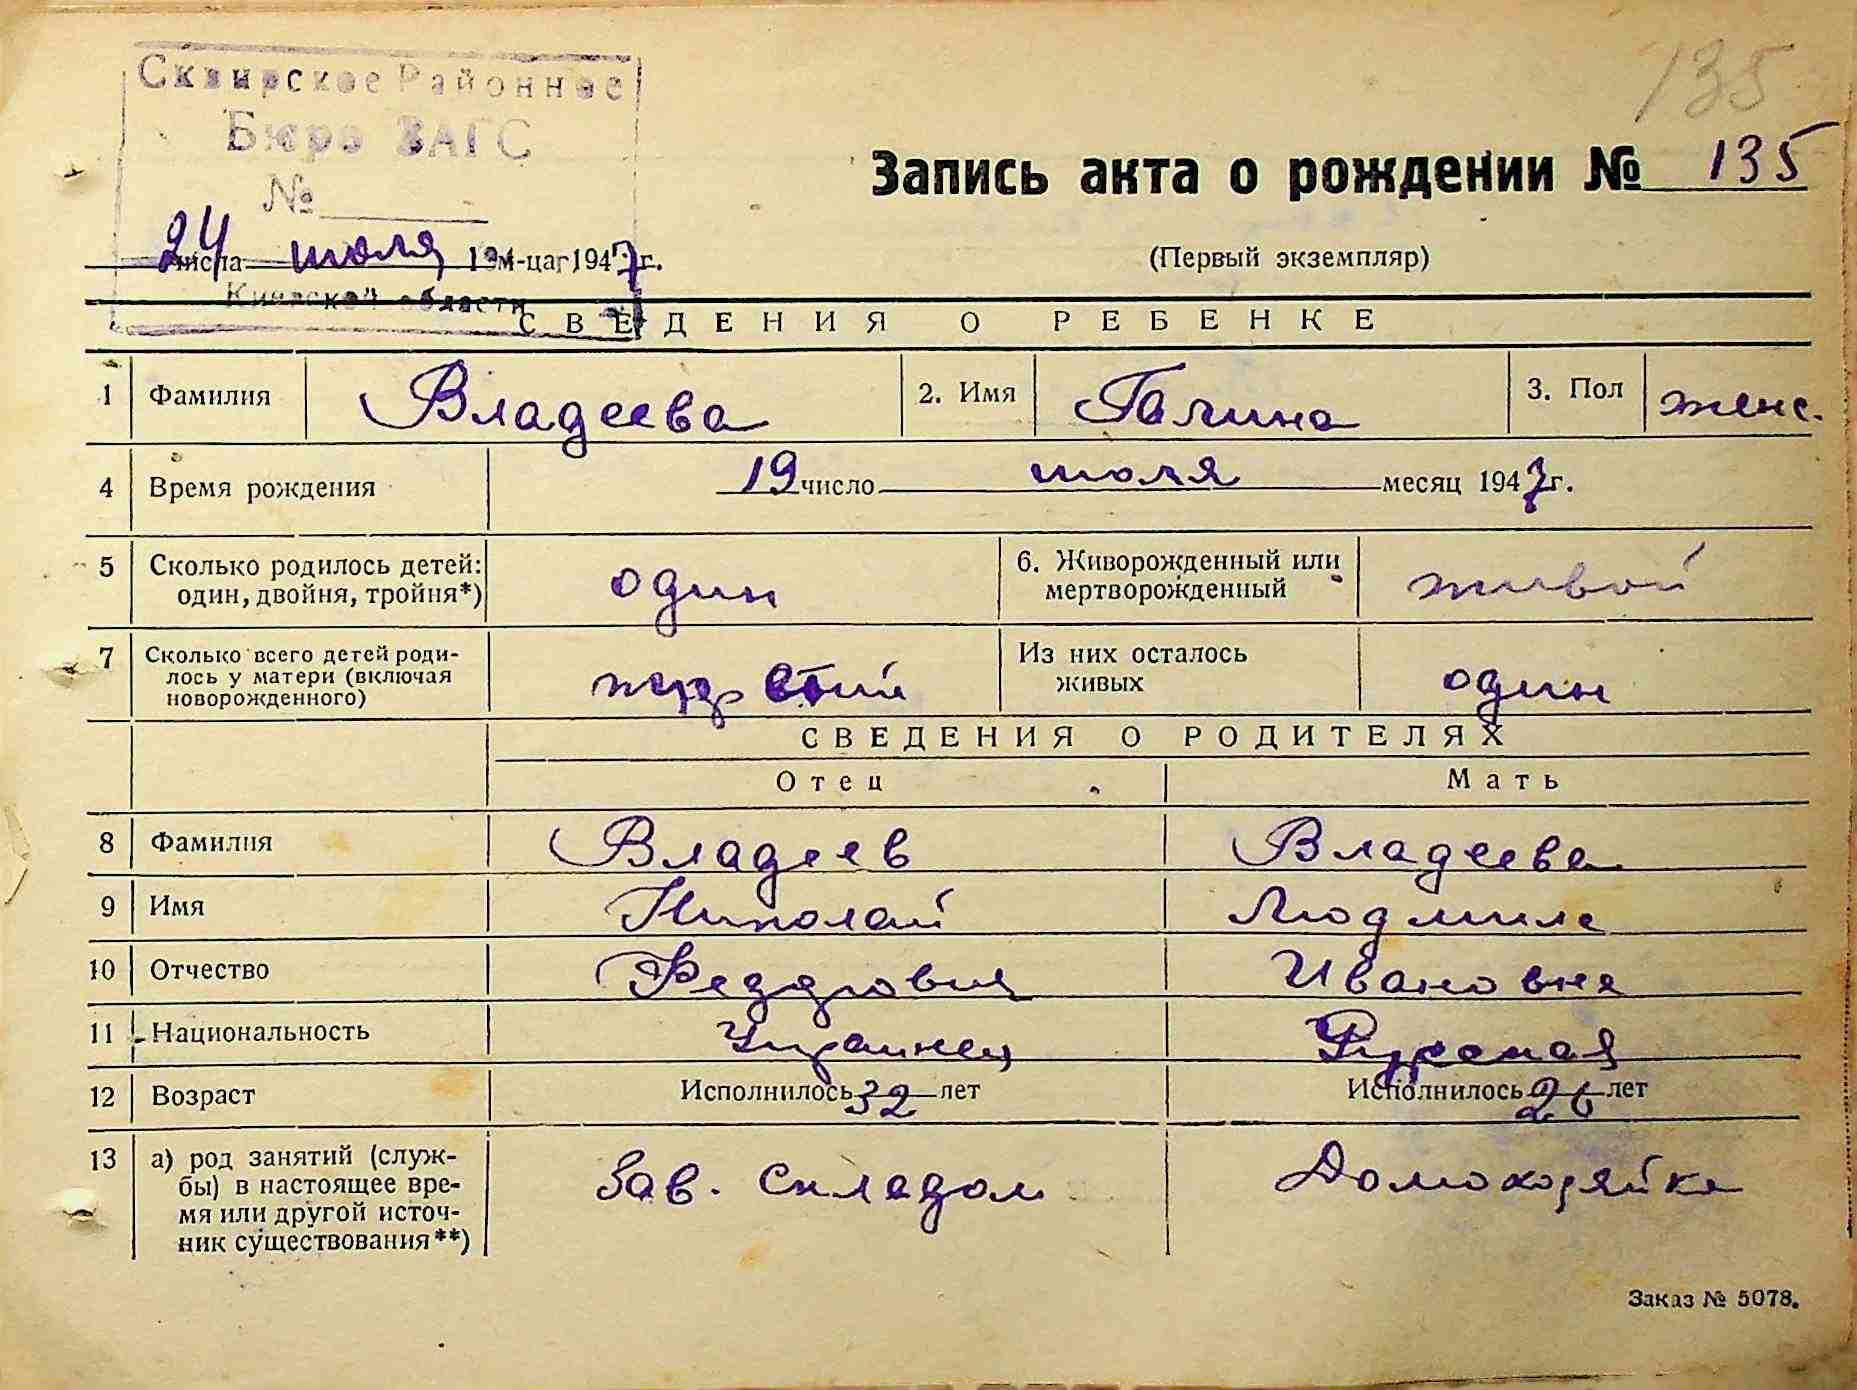 135
Сквирское Районное
Бюро ЗАГС
№
Запись акта о рождении № 135
24 числа июля м-ца 1947 г.
(Первый экземпляр)
Киевской области
СВЕДЕНИЯ О РЕБЕНКЕ
1 Фамилия Владеева 2. Имя Галина 3. Пол женс.
4 Время рождения 19 число июля месяц 1947 г.
5 Сколько родилось детей: один 6. Живорожденный или живой
один, двойня, тройня*) мертворожденный
7 Сколько всего детей роди- Из них осталось один
лось у матери (включая живых
новорожденного)
СВЕДЕНИЯ О РОДИТЕЛЯХ
Отец Мать
8 Фамилия Владеев Владеева
9 Имя Николай Людмила
10 Отчество Федорович Ивановна
11 Национальность Украинец Русская
12 Возраст Исполнилось 32 лет Исполнилось 26 лет
13 а) род занятий (служ- Зав. складом Домохозяйка
бы) в настоящее вре-
мя или другой источ-
ник существования**)
Заказ № 5078.